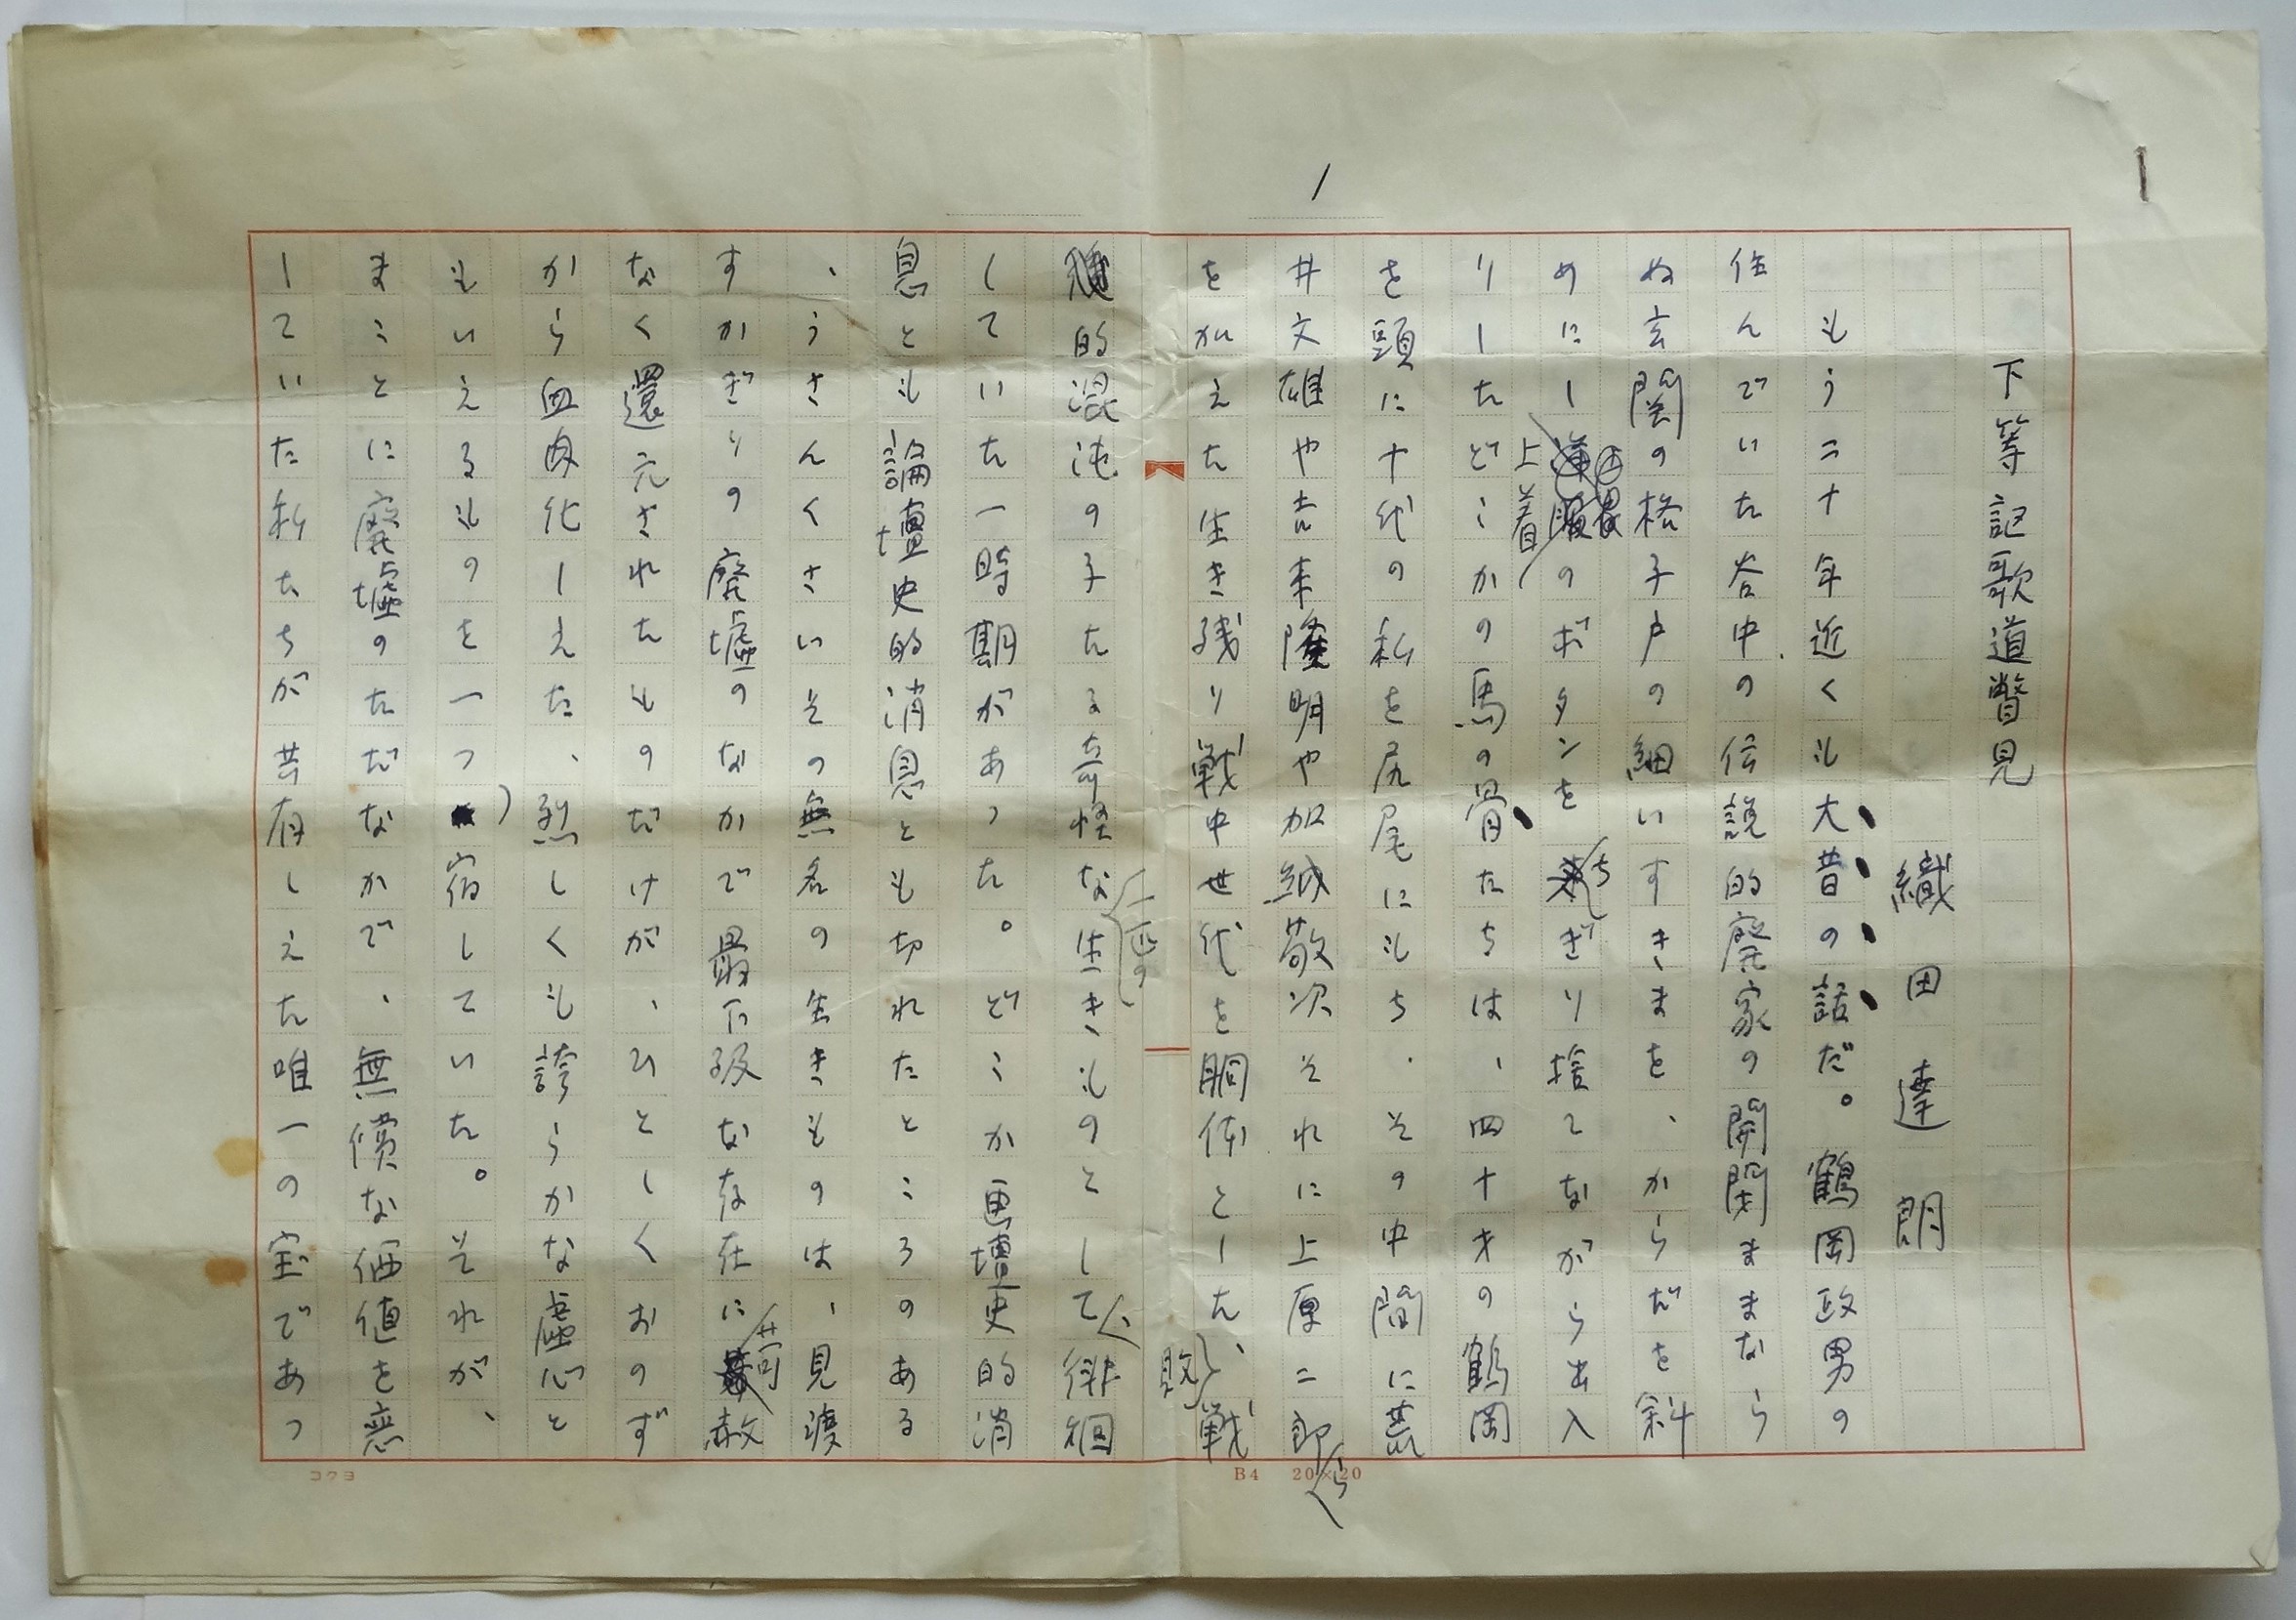 1
下等記歌道瞥見
織田達朗
もう二十年近くも大昔の話だ。鶴岡政男の
住んでいた谷中の伝説的廃家の開閉ままなら
ぬ玄関の格子戸の細いすきまを、からだを斜
めにし上着のボタンをちぎり捨てながら出入
りしたどこかの馬の骨たちは、四十才の鶴岡
を頭に十代の私を尻尾にもち、その中間に荒
井文雄や吉本隆明や加納敬次それに上原二郎ら
をかえた生き残り戦中世代を胴体とした、敗戦
的混沌の子たる奇怪な一匹の生きものとして、徘徊
していた一時期があった。どこか画壇史的消
息とも論壇史的消息とも切れたところのある
、うさんくさいその無名の生きものは、見渡
すかぎりの廃墟のなかで最下級な存在に苛赦
なく還元されたものだけが、ひとしくおのず
から血肉化しえた、烈しくも誇らかな虚心と
もいえるものを一つ宿していた。それが、
まことに廃墟のただなかで、無償な価値を意
していた私たちが共有しえた唯一の宝であっ
B4 20×20
コクヨ